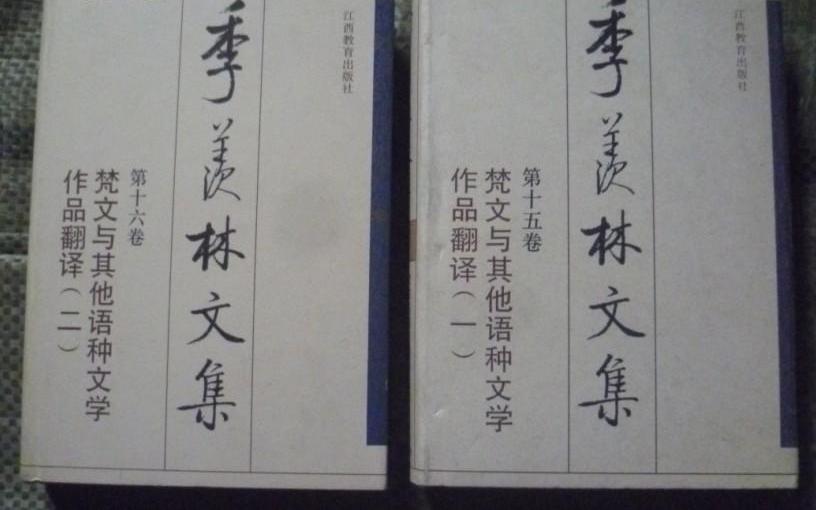 江西教育出版社
季羡林文集
第十六卷
梵文与其他语种文学
作品翻译（二）
江西教育出版社
季羡林文集
第十五卷
梵文与其他语种文学
作品翻译（一）